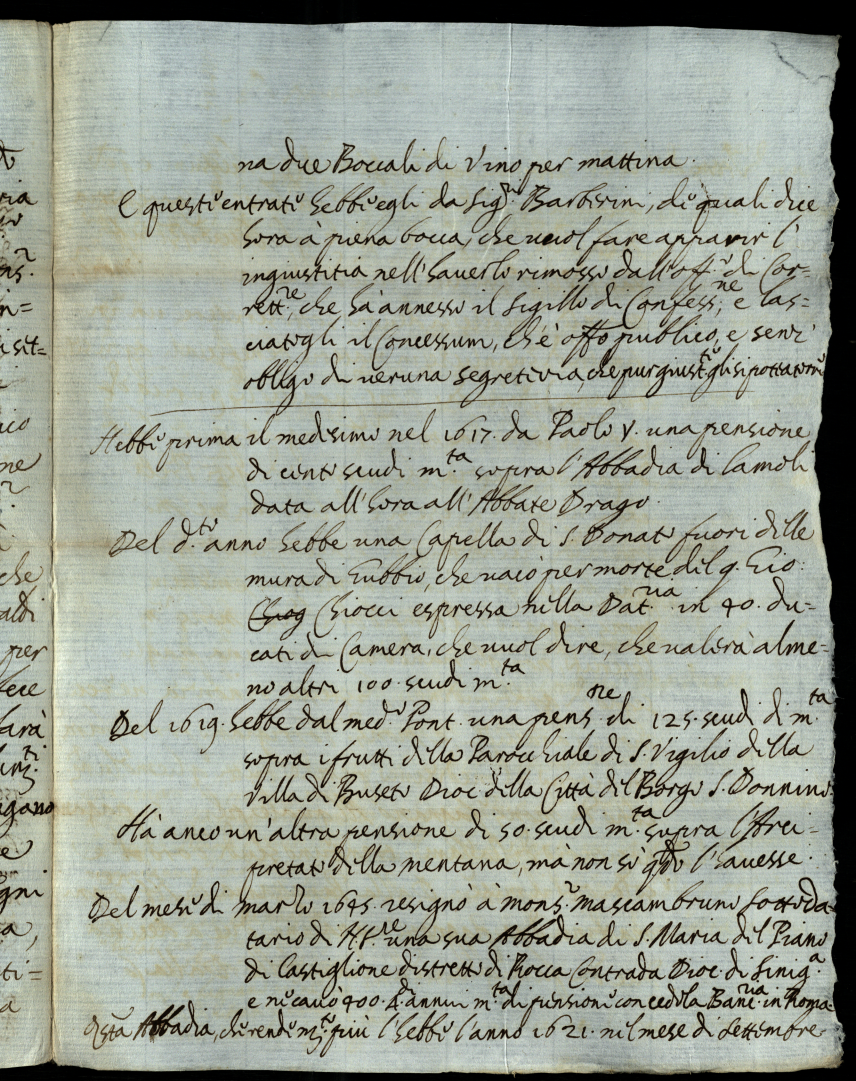 na due Boccali di Vino per mattina.
E queste entrate hebbe egli da Sig.ri Barberini, de quali dice
hora à piena bocca, che vuol fare apparir l'
ingiustitia nell'haverlo rimosso dall'off.o di Cor=
rett.re, che hà annesso il sigillo di Confess.ne, e las=
ciatogli il Concessum, ch'è offo publico, e senz'
obligo di veruna segretezza, che pur giust.te gli si potta torre
Hebbe prima il medesimo nel 1617. da Paolo V. una pensione
di cento scudi m.ta sopra l'Abbadia di Lamoli
data all'hora all'Abbate Drago.
Del d.to anno hebbe una Capella di S. Donato fuori delle
mura di Gubbio, che vacò per morte del q. Gio:
Chiocci espressa nella Dat.ria in 40. du=
cati di Camera, che vuol dire, che valerà alme=
no altri 100. scudi m.ta
Del 1619. hebbe dal med.o Pont. una pens.ne di 125. scudi di m.ta
sopra i frutti della Parochiale di S. Vigilio della
Villa di Buseto Dioc. della Città del Borgo S. Donnino.
Hà anco un'altra pensione di 50. scudi m.ta sopra l'Arci=
pretato della mentana, mà non sò qdo l'havesse.
Del mese di marzo 1645. resignò à mons.r mascambruno sottoda=
tario di una sua Abbadia di S. Maria del Piano
di Castiglione distretto di Rocca Contrada Dioc. di Sinig.a
e ne cavò 400. annui m.ta di pensione con cedola Banc.ria in Roma.
Qsta Abbadia, che rende più l'hebbe l'anno 1621. nel mese di settembre